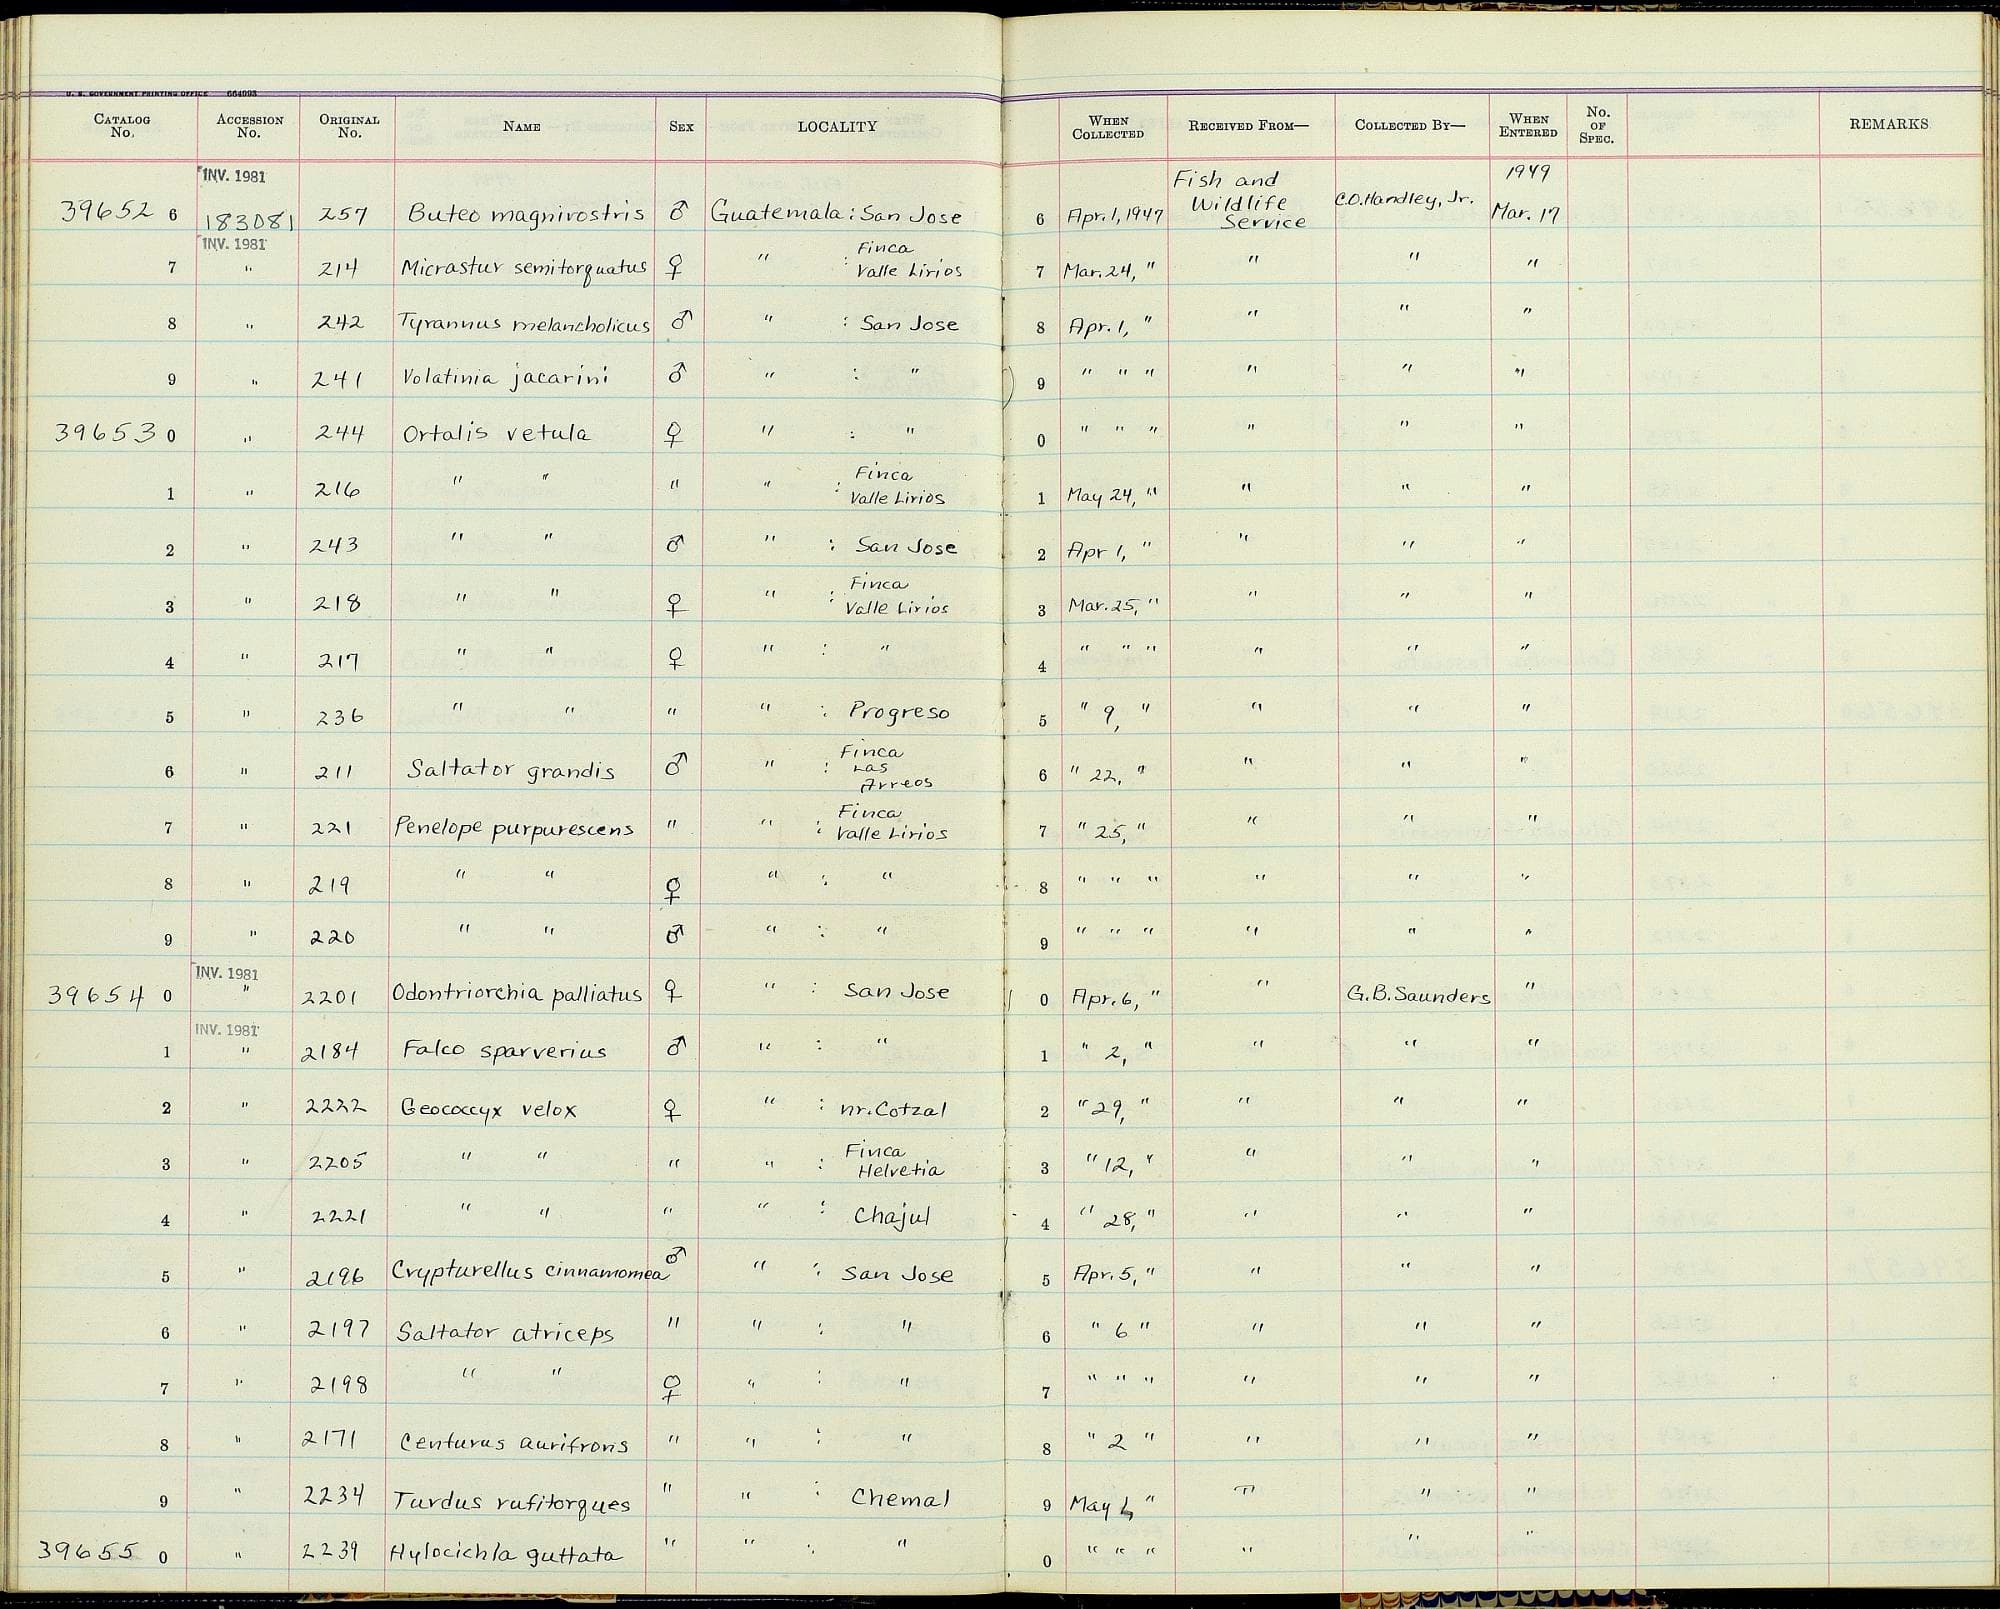 U. S. GOVERNMENT PRINTING OFFICE 664093
CATALOG No. ACCESSION No. ORIGINAL No. NAME SEX LOCALITY WHEN COLLECTED RECEIVED FROM— COLLECTED BY— WHEN ENTERED No. OF SPEC. REMARKS
INV. 1981 Fish and Wildlife Service 1949
39652 6 183081 257 Buteo magnirostris ♂ Guatemala: San Jose 6 Apr. 1, 1947 C.O. Handley, Jr. Mar. 17
INV. 1981
7 " 214 Micrastur semitorquatus ♀ " : Finca Valle Lirios 7 Mar. 24, " " " "
8 " 242 Tyrannus melancholicus ♂ " : San Jose 8 Apr. 1, " " " "
9 " 241 Volatinia jacarini ♂ " : " 9 " " " " " "
39653 0 " 244 Ortalis vetula ♀ " : " 0 " " " " " "
1 " 216 " " " " : Finca Valle Lirios 1 May 24, " " " "
2 " 243 " " ♂ " : San Jose 2 Apr 1, " " " "
3 " 218 " " ♀ " : Finca Valle Lirios 3 Mar. 25, " " " "
4 " 217 " " ♀ " : " 4 " " " " " "
5 " 236 " " " " : Progreso 5 " 9, " " " "
6 " 211 Saltator grandis ♂ " : Finca Las Arreos 6 " 22, " " " "
7 " 221 Penelope purpurescens " " : Finca Valle Lirios 7 " 25, " " " "
8 " 219 " " ♀ " : " 8 " " " " " "
9 " 220 " " ♂ " : " 9 " " " " " "
INV. 1981
39654 0 " 2201 Odontriorchia palliatus ♀ " : San Jose 0 Apr. 6, " " G.B. Saunders "
INV. 1981
1 " 2184 Falco sparverius ♂ " : " 1 " 2, " " " "
2 " 2222 Geococcyx velox ♀ " : nr. Cotzal 2 " 29, " " " "
3 " 2205 " " " " : Finca Helvetia 3 " 12, " " " "
4 " 2221 " " " " : Chajul 4 " 28, " " " "
5 " 2196 Crypturellus cinnamomea ♂ " : San Jose 5 Apr. 5, " " " "
6 " 2197 Saltator atriceps " " : " 6 " 6 " " " "
7 " 2198 " " ♀ " : " 7 " " " " " "
8 " 2171 Centurus aurifrons " " : " 8 " 2 " " " "
9 " 2234 Turdus rufitorques " " : Chemal 9 May " " " "
39655 0 " 2239 Hylocichla guttata " " : " 0 " " " " " "